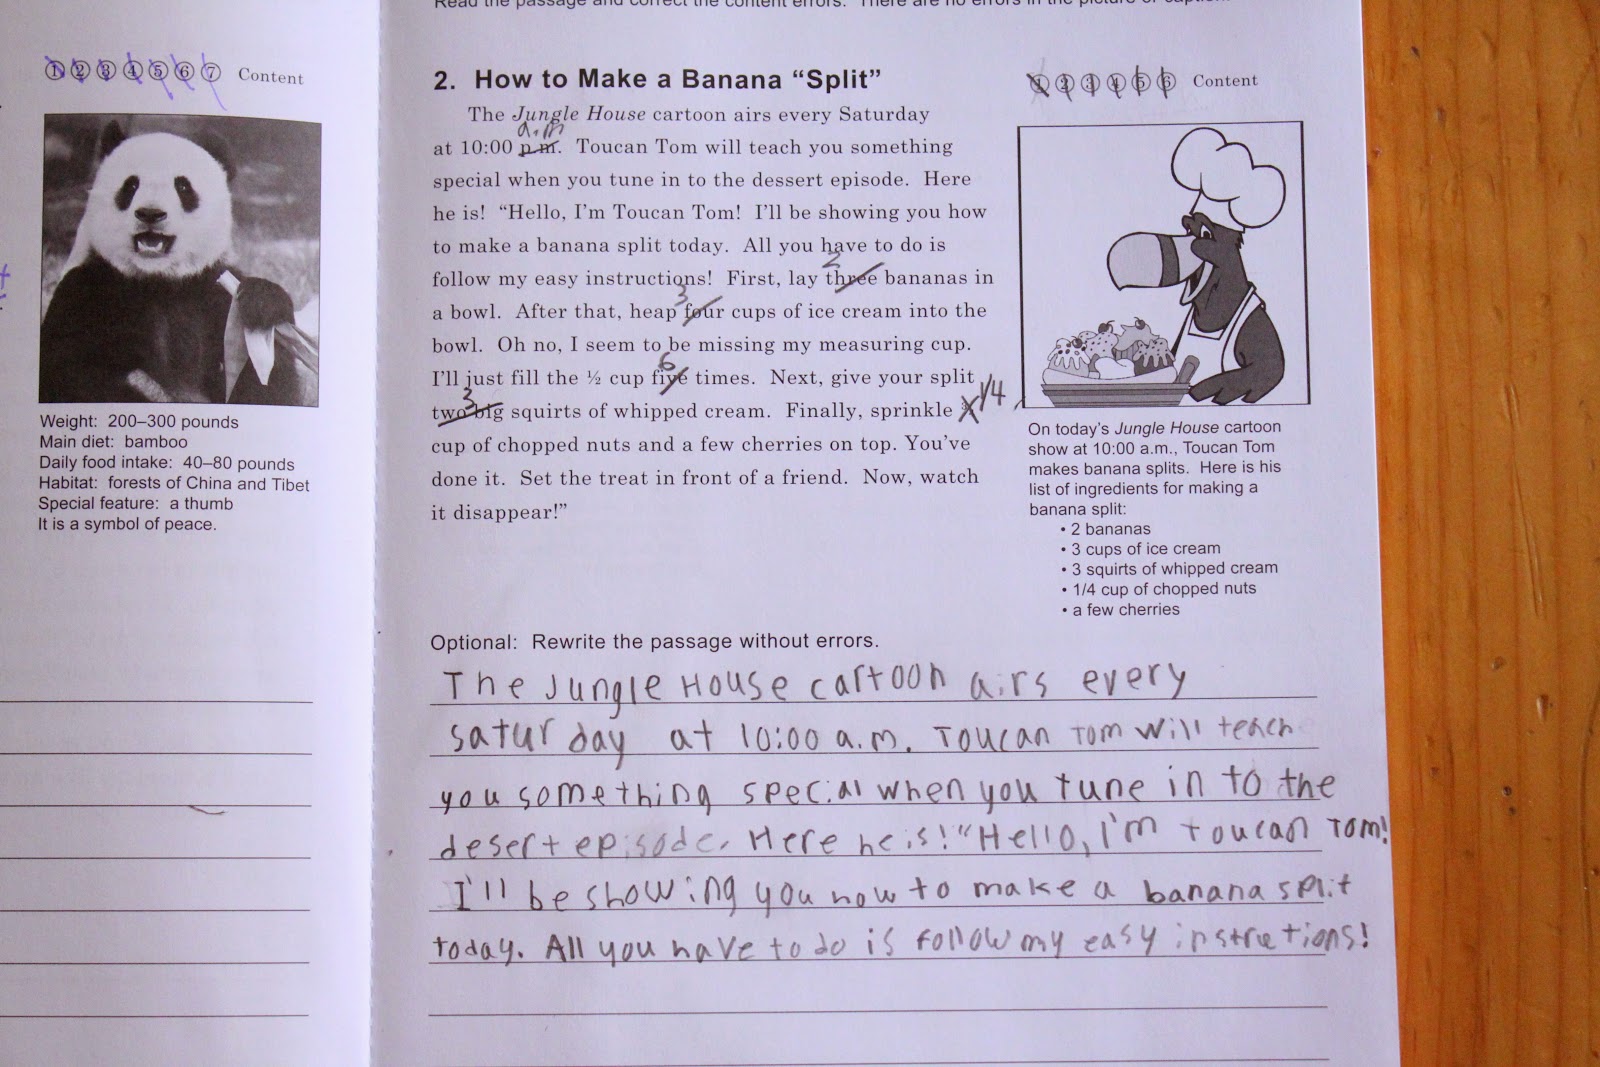 Read the passage and correct the content errors. There are no errors in the picture or caption.
1 2 3 4 5 6 7 Content
Weight: 200–300 pounds
Main diet: bamboo
Daily food intake: 40–80 pounds
Habitat: forests of China and Tibet
Special feature: a thumb
It is a symbol of peace.
2. How to Make a Banana “Split”
The Jungle House cartoon airs every Saturday
a.m
at 10:00 p.m. Toucan Tom will teach you something
special when you tune in to the dessert episode. Here
he is! “Hello, I’m Toucan Tom! I’ll be showing you how
to make a banana split today. All you have to do is
2
follow my easy instructions! First, lay three bananas in
3
a bowl. After that, heap four cups of ice cream into the
bowl. Oh no, I seem to be missing my measuring cup.
6
I’ll just fill the ½ cup five times. Next, give your split
3
two big squirts of whipped cream. Finally, sprinkle 1/4
cup of chopped nuts and a few cherries on top. You’ve
done it. Set the treat in front of a friend. Now, watch
it disappear!”
1 2 3 4 5 6 Content
On today’s Jungle House cartoon
show at 10:00 a.m., Toucan Tom
makes banana splits. Here is his
list of ingredients for making a
banana split:
• 2 bananas
• 3 cups of ice cream
• 3 squirts of whipped cream
• 1/4 cup of chopped nuts
• a few cherries
Optional: Rewrite the passage without errors.
The Jungle House cartoon airs every
saturday at 10:00 a.m. Toucan Tom will teach
you something special when you tune in to the
desert episode. Here he is! “Hello, I’m Toucan Tom!
I’ll be showing you how to make a banana split
today. All you have to do is follow my easy instructions!